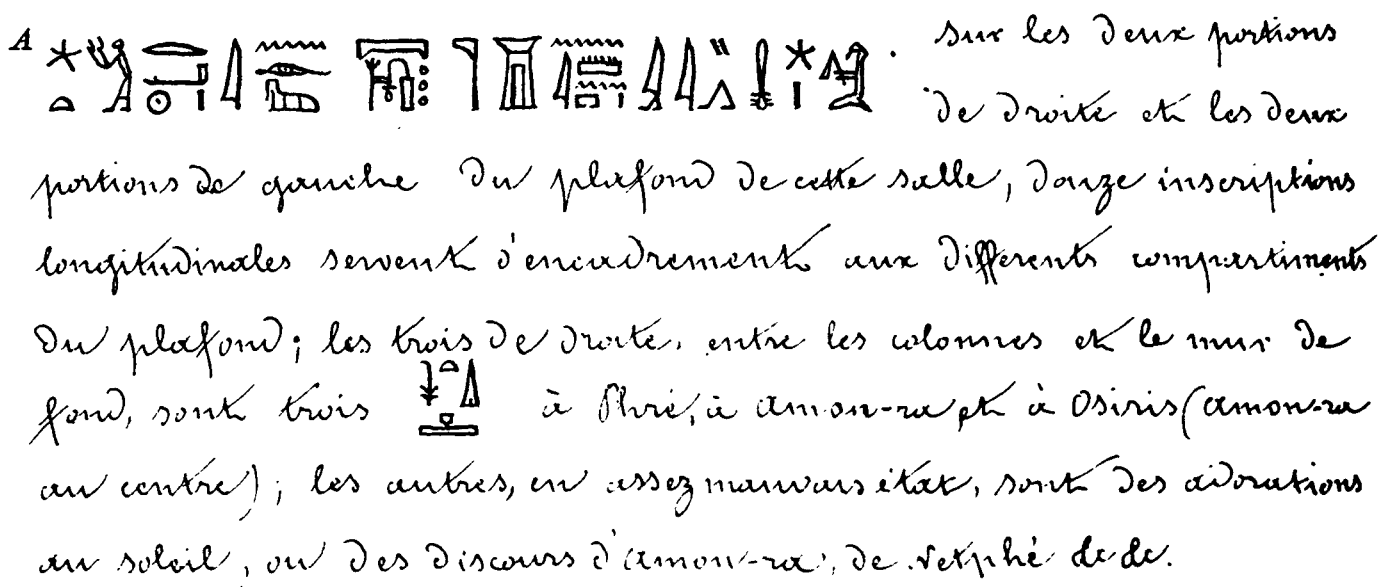 A sur les deux portions
de droite et les deux
portions de gauche du plafond de cette salle, douze inscriptions
longitudinales servent d'encadrement aux différents compartiments
du plafond; les trois de droite, entre les colonnes et le mur de
fond, sont trois à Phré, à Amon-ra et à Osiris (Amon-ra
au centre); les autres, en assez mauvais état, sont des adorations
au soleil, ou des discours d'Amon-ra, de Netphé &c &c.